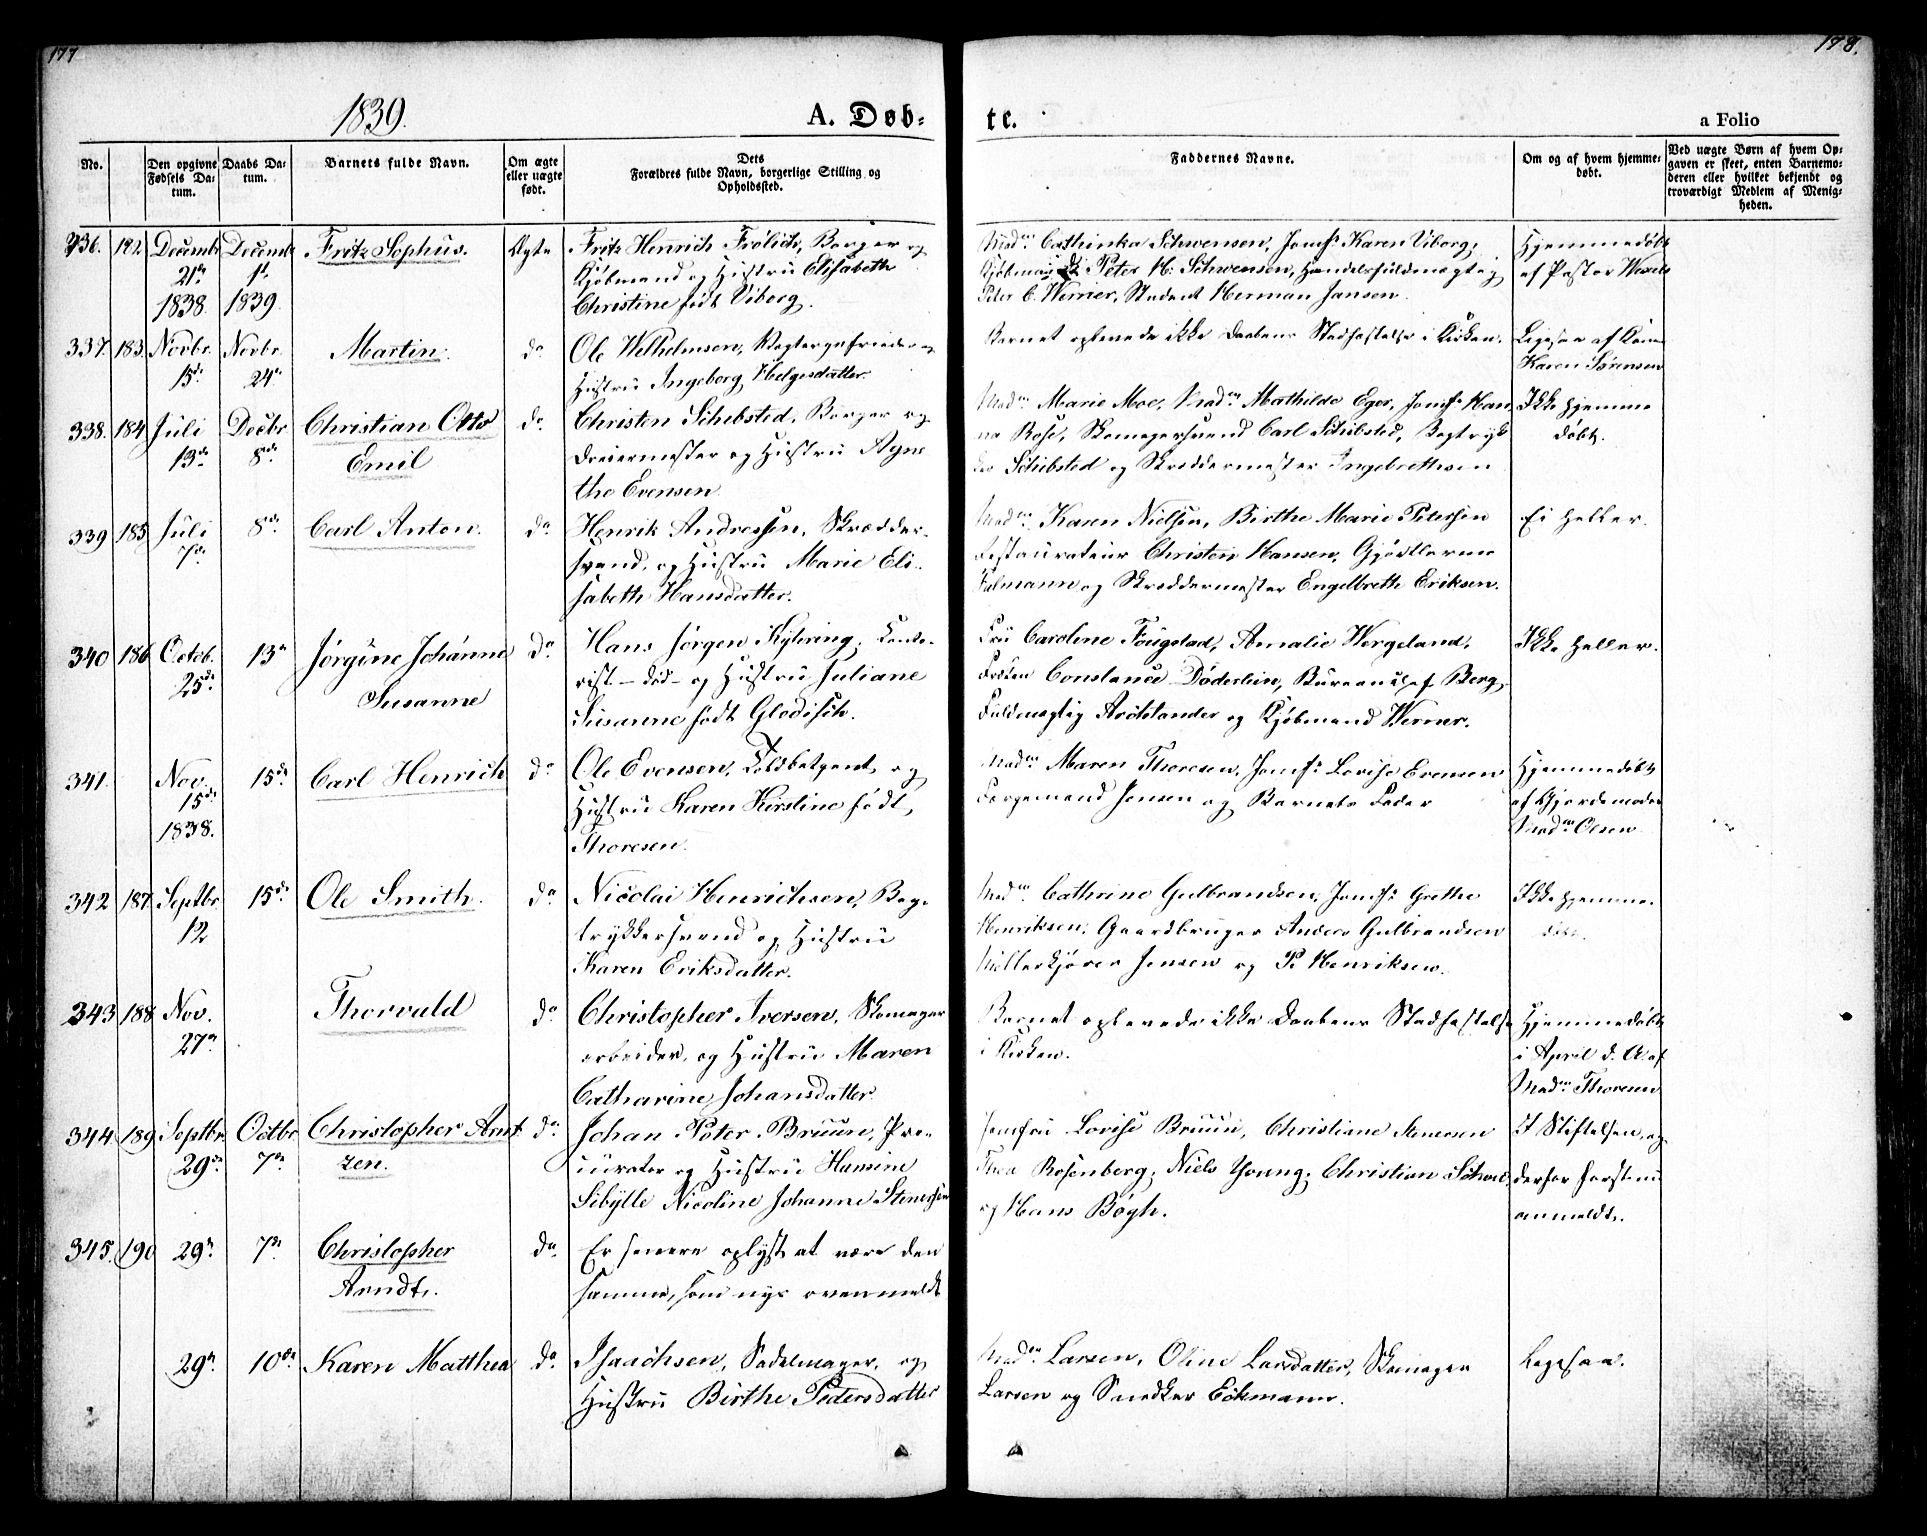 177
178.
1839.
A. Døb-
te.
a Folio
No.
Den opgivne Fødsels Datum.
Daabs Datum.
Barnets fulde Navn.
Om ægte eller uægte født.
Dets Forældres fulde Navn, borgerlige Stilling og Opholdssted.
Faddernes Navne.
Om og af hvem hjemmedøbt.
Ved uægte Børn af hvem Opgaven er skeet, enten Barnemoderen eller hvilket bekjendt og troværdigt Medlem af Menigheden.
336. 182. Decembr 21de 1838. Decemb 1st 1839. Fritz Sophus. Ægte
Fritz Henrich Frölich, Borger og
Kjøbmand og Hustru Elisabeth
Christine født Viborg.
Madm Cathinka Schwensen, Jomfr Karen Viborg,
Kjøbmænd Peter H. Schwensen, Handelsfuldmægtig
Peter C. Werner, Student Herman Jansen.
Hjemmedøbt
af Pastor Wexels
337. 183. Novbr. 15de Novbr. 24de Martin. do
Ole Wilhelmsen,
Hustru Ingeborg Helgesdatter.
Barnet oplevede ikke Daabens Stadfæstelse i Kirken.
Ligesaa af
Karen Sørensen
338. 184 Juli 13de Decbr 8de Christian Otto
Emil
do
Christen Schibsted, Borger og
Dreiermester og Hustru Agne
the Evensen.
Madm Marie Moe, Madm Mathilde Eger, Jomfr Han
na Rose, Skomagersvend Carl Schibsted, Bogtryk
ker Schibsted og Skreddermester Ingebrethsen
Ikke hjemme
døbt.
339 185 Juli 7de 8de Carl Anton. do
Henrik Andressen, Skrædder-
svend, og Hustru Marie Eli-
sabeth Hansdatter.
Madm Karen Nielsen, Birthe Marie Petersen
Restaurateur Christen Hansen, Gjørtlerne
og Skreddermester Engelbreth Eriksen.
Ei heller.
340 186 Octob. 25de 13de Jørgine Johanne
Susanne
do
Hans Jørgen Kyhring, Conto-
rist - død - og Hustru Juliane
Susanne født Glodisch.
Fru Caroline Fougstad, Amalie Wergeland,
Frøken Constance Døderlein, Bureauchef Berg,
Fuldmægtig og Kjøbmand Werner.
Ikke heller.
341. Nov. 15de 1838. 15de Carl Henrich do
Ole Evensen, Toldbetjent, og
Hustru Karen Kirstine født,
Thoresen.
Madm Maren Thoresen, Jomfr Lovise Evensen
Fargemand Jensen og Barnets Fader
Hjemmedøbt
af Gjordemoder
Madm Olsen
342 187 Septbr. 12 15de Ole Smith. do
Nicolai Henrichsen, Bog-
trykkersvend og Hustru
Karen Eriksdatter.
Madm Cathrine Gulbrandsen, Jomfr Grethe
Henriksen, Gaardbruger Anders Gulbrandsen
Jensen og P. Henriksen.
Ikke hjemme-
døbt.
343 188 Nov. 27de Thorvald do
Christopher Iversen, Skomager
arbeider, og Hustru Maren
Catharine Johansdatter.
Barnet oplevede ikke Daabens Stadfæstelse
i Kirken.
Hjemmedøbt
i April d. A. af
Madm Thoresen
344 189 Septbr. 29de Octbr 7de Christopher Arnt
zen.
do
Johan Peter Bruun, Pro-
curator og Hustru Humine
Sibylle Nicoline Johanne Stenersen
Jomfru Lovise Bruun, Christiane Stenersen
Thea Rosenberg, Niels Young,
og Hans Bøgh.
I Stiftelsen, og
derfor først nu
anmeldt.
345. 190 29de 7de Christopher
Arndt.
do
Er senere oplyst at være den
samme, som nys ovenmeldt
29de 10de Karen Matthea do
Isaachsen, Sadelmager, og
Hustru Birthe Pedersdatter
Madm Larsen, Oline Larsdatter, Skomager
Larsen og Snedker Eckmann.
Ligesaa.